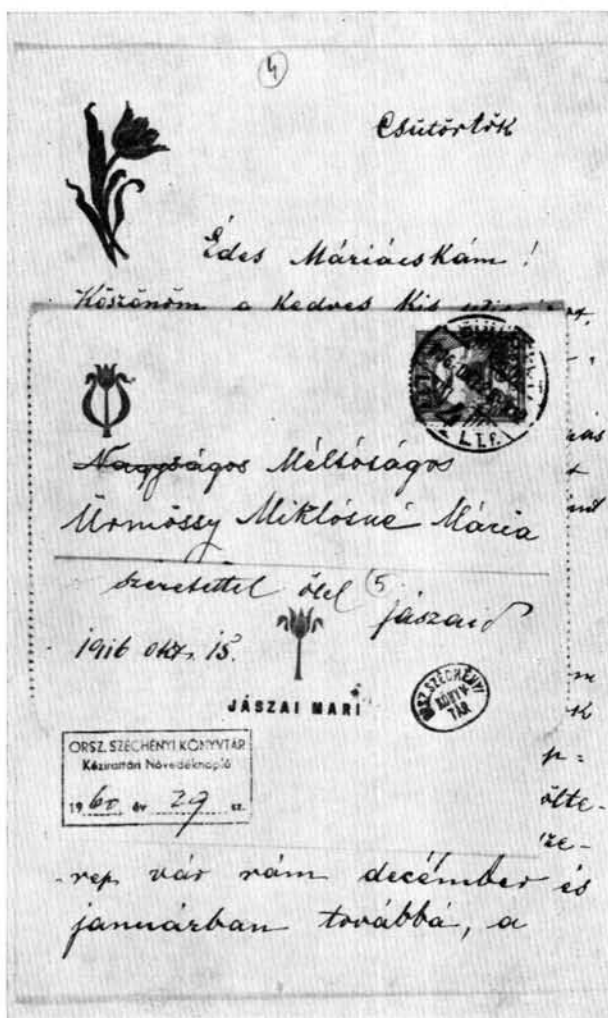 4
Csütörtök
Édes Máriácskám!
Köszönöm a kedves kis
Nagyságos Méltóságos
Ürmössy Miklósné Mária
szeretettel ölel 5 jászaid
1916 okt. 15.
JÁSZAI MARI
ORSZ. SZÉCHÉNYI KÖNYVTÁR
ORSZ. SZÉCHÉNYI KÖNYVTÁR
Kézirattári Növedéknapló
1960 év 29 sz.
ölte-
sze-
rep vár rám decémber és
januárban továbbá, a